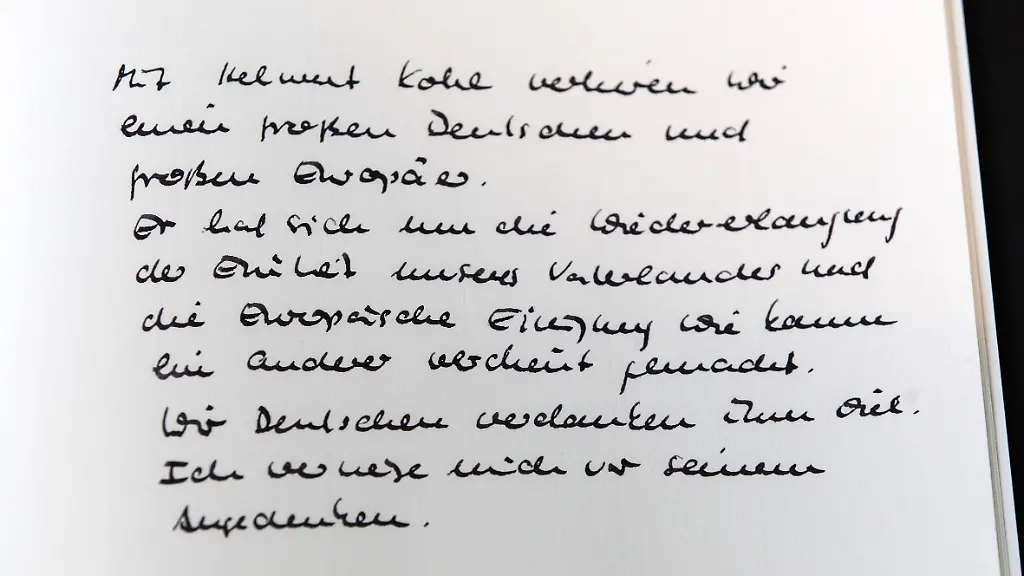 Mit Helmut Kohl verlieren wir
einen großen Deutschen und
großen Europäer.
Er hat sich um die Wiedererlangung
der Einheit unseres Vaterlandes und
die Europäische Einigung wie kaum
ein anderer verdient gemacht.
Wir Deutschen verdanken ihm viel.
Ich verneige mich vor seinem
Angedenken.